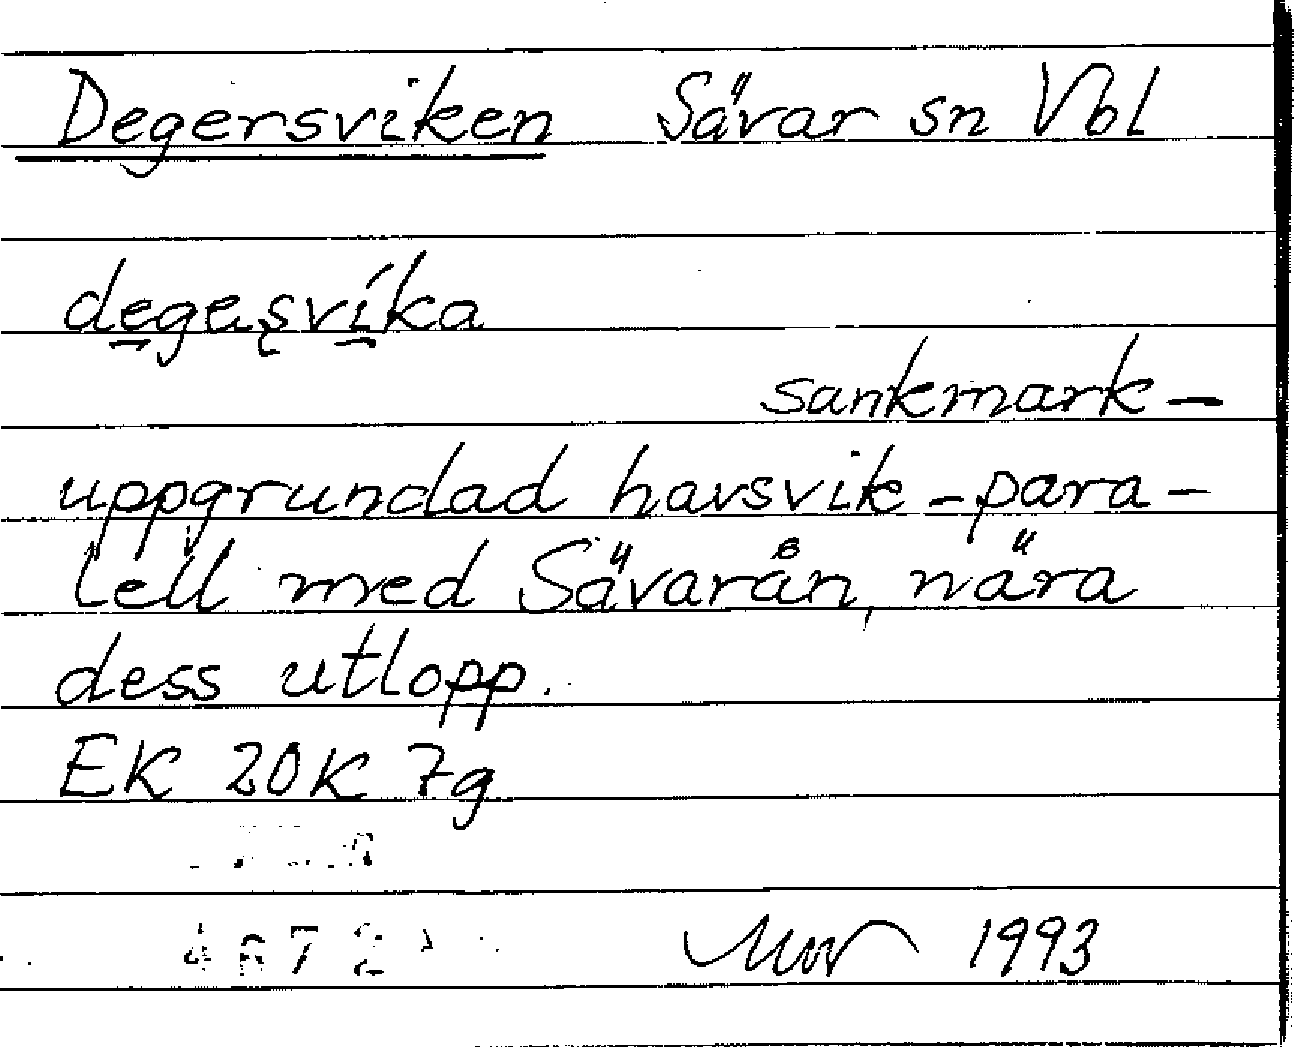 Degersviken Sävar sn Vbl
degaṣvíka
sankmark -
uppgrundad havsvik - para-
lell med Sävarån, nära
dess utlopp.
EK 20K 7g
4672
1993